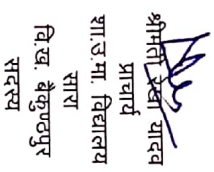 श्रीमती यादव
प्राचार्य
शा.उ.मा. विद्यालय
सारा
वि.ख. बैकुण्ठपुर
सदस्य